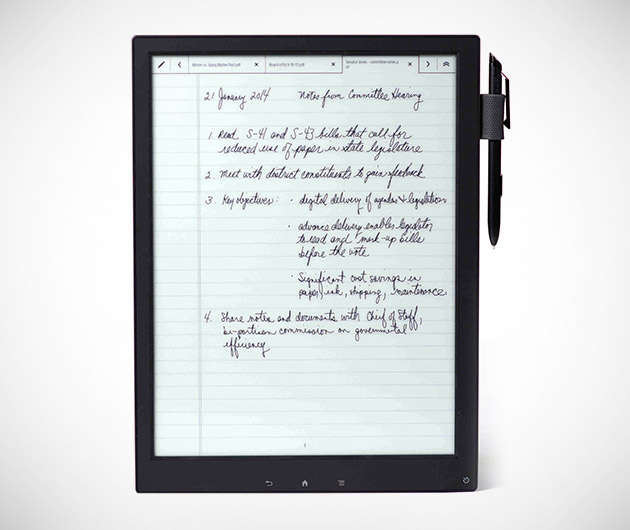 Board of Ed 9-10-13.pdf
Senator notes - committee notes.p
21 January 2014 Notes from Committee Hearing
1. Read S-41 and S-43 bills that call for
reduced use of paper in state legislature
2. Meet with district constituents to gain feedback
3. Key objectives: · digital delivery of agendas + legislation
· advance delivery enables legislator
to read and mark-up bills
before the vote
· Significant cost savings in
paper, ink, shipping, maintenance
4. Share notes and documents with Chief of Staff,
bi-partisan commission on governmental
efficiency
1